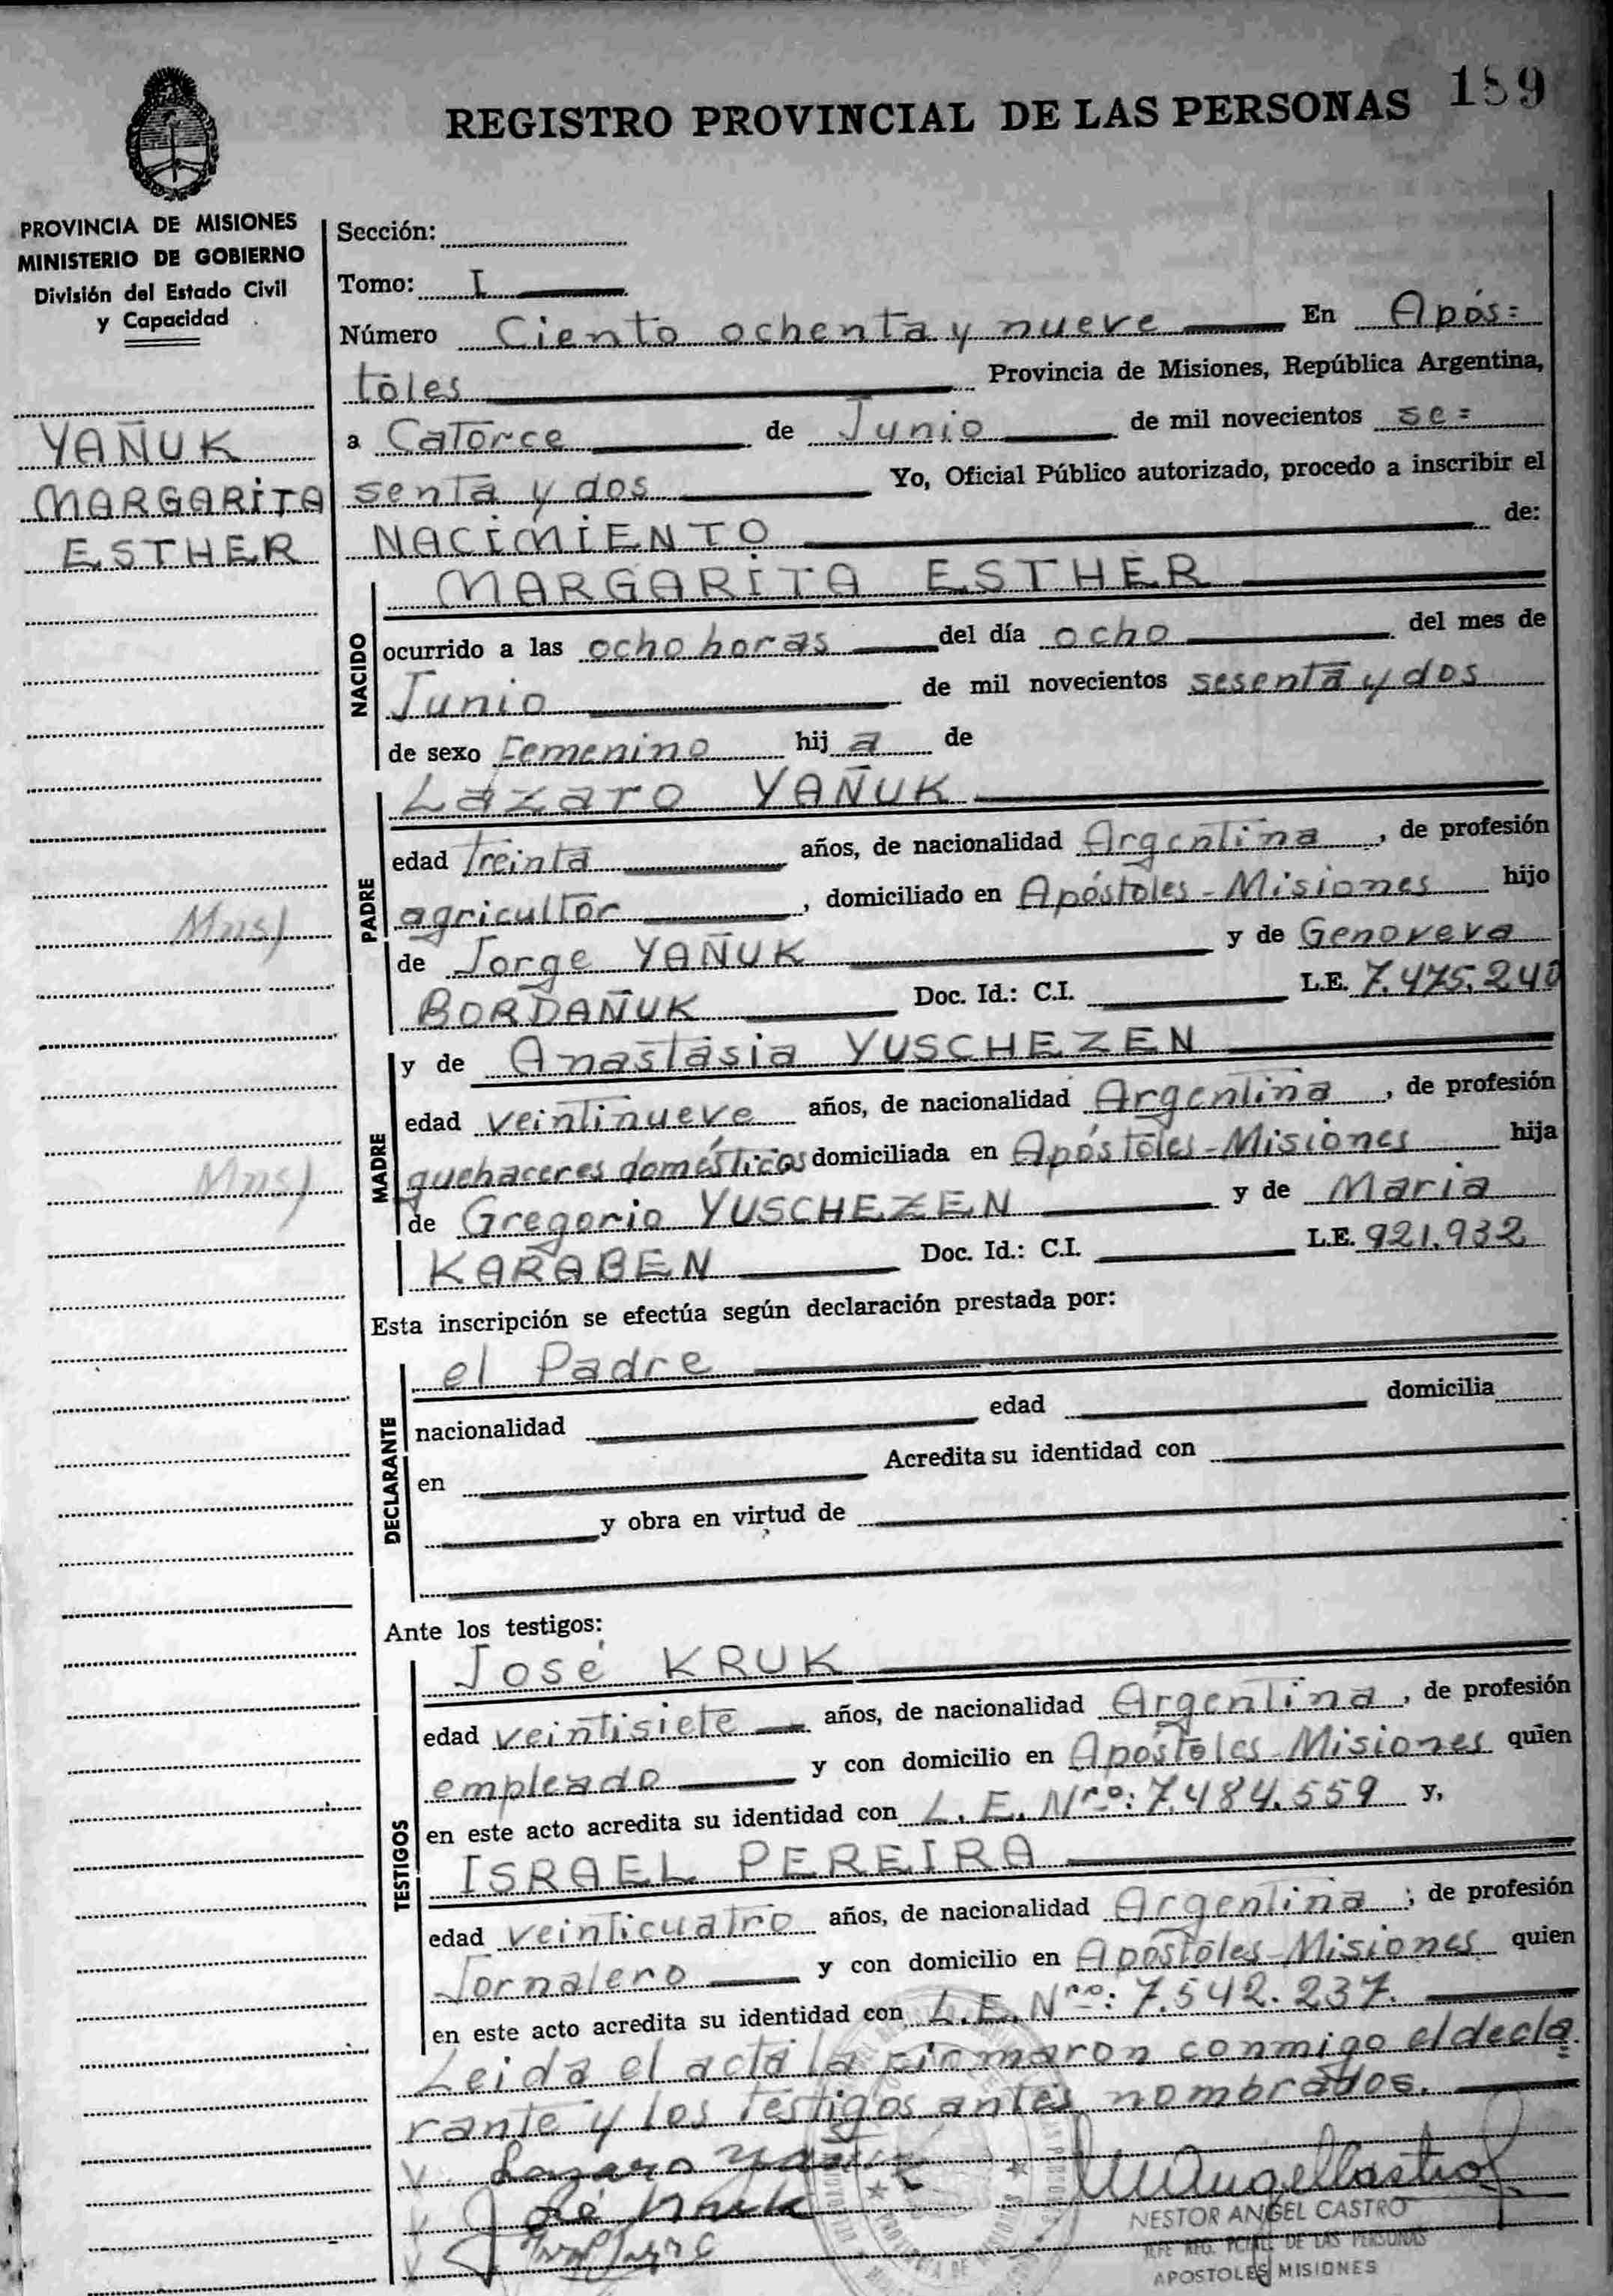 189
REGISTRO PROVINCIAL DE LAS PERSONAS
PROVINCIA DE MISIONES
MINISTERIO DE GOBIERNO
División del Estado Civil
y Capacidad
YAÑUK
MARGARITA
ESTHER
Mns)
Mns)
Sección:
Tomo: I
Número Ciento ochenta y nueve En Após=
toles Provincia de Misiones, República Argentina,
a Catorce de Junio de mil novecientos se=
senta y dos Yo, Oficial Público autorizado, procedo a inscribir el
NACIMIENTO de:
NACIDO
MARGARITA ESTHER
ocurrido a las ocho horas del día ocho del mes de
Junio de mil novecientos sesenta y dos
de sexo Femenino hij a de
PADRE
Lázaro YAÑUK
edad Treinta años, de nacionalidad Argentina, de profesión
agricultor, domiciliado en Apóstoles - Misiones hijo
de Jorge YAÑUK y de Genoveva
BORDAÑUK Doc. Id.: C.I. L.E. 7.475.240
MADRE
y de Anastasia YUSCHEZEN
edad veintinueve años, de nacionalidad Argentina, de profesión
quehaceres domésticos domiciliada en Apóstoles - Misiones hija
de Gregorio YUSCHEZEN y de Maria
KARABEN Doc. Id.: C.I. L.E. 921.932
Esta inscripción se efectúa según declaración prestada por:
DECLARANTE
el Padre
nacionalidad edad domicilia
en Acredita su identidad con
y obra en virtud de
Ante los testigos:
TESTIGOS
José KRUK
edad veintisiete años, de nacionalidad Argentina, de profesión
empleado y con domicilio en Apóstoles - Misiones quien
en este acto acredita su identidad con L. E. Nro: 7.484.559 y,
ISRAEL PEREIRA
edad veinticuatro años, de nacionalidad Argentina; de profesión
Jornalero y con domicilio en Apóstoles - Misiones quien
en este acto acredita su identidad con L. E. Nro: 7.542.237.
Leida el acta la firmaron conmigo el decla=
rante y los testigos antes nombrados.
Lazaro Yañuk
José Kruk
NESTOR ANGEL CASTRO
JEFE REG. PCIAL. DE LAS PERSONAS
APOSTOLES MISIONES